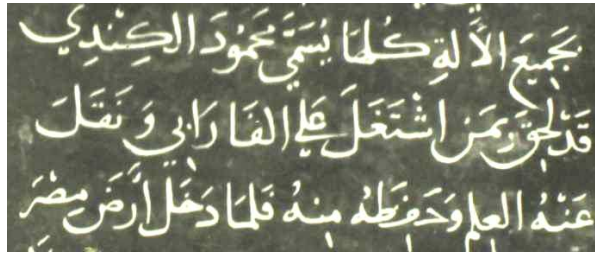 بجَمِيعَ الاَلَةِ كُلهَا يُسَمَّي مَحمُودَ الكِندِي
قَدْ لحِقَ بِمَن اشْتَغَلَ عَلي الفَارَابي وَنَقَلَ
عَنْهُ العِلم وَحَفِظهُ مِنهُ فَلمَا دَخَل أرَضَ مِصْرَ